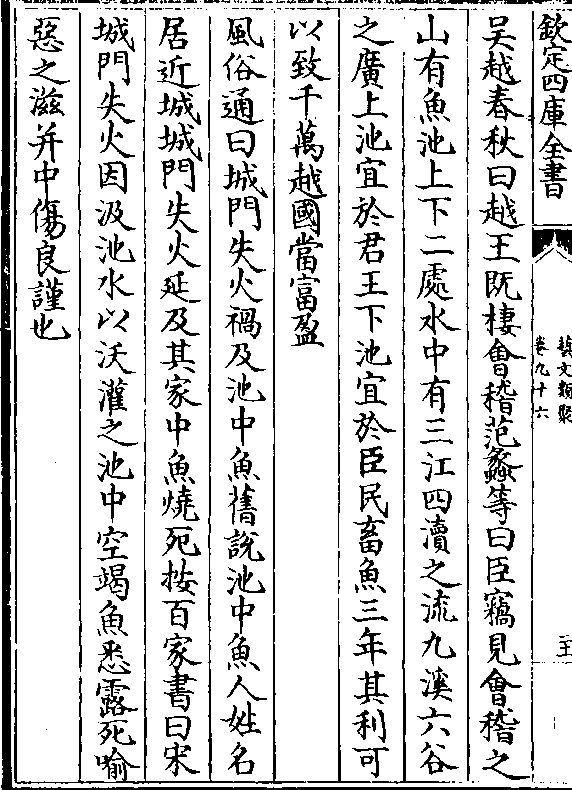 欽定四庫全書
藝文類聚
卷九十六
吴越春秋曰越王既棲會稽范蠡等曰臣竊見會稽之
山有魚池上下二處水中有三江四瀆之流九溪六谷
之廣上池宜於君王下池宜於臣民畜魚三年其利可
以致千萬越國當富盈
風俗通曰城門失火禍及池中魚舊說池中魚人姓名
居近城城門失火延及其家中魚燒死按百家書曰宋
城門失火因汲池水以沃灌之池中空竭魚悉露死喻
惡之滋并中傷良謹也